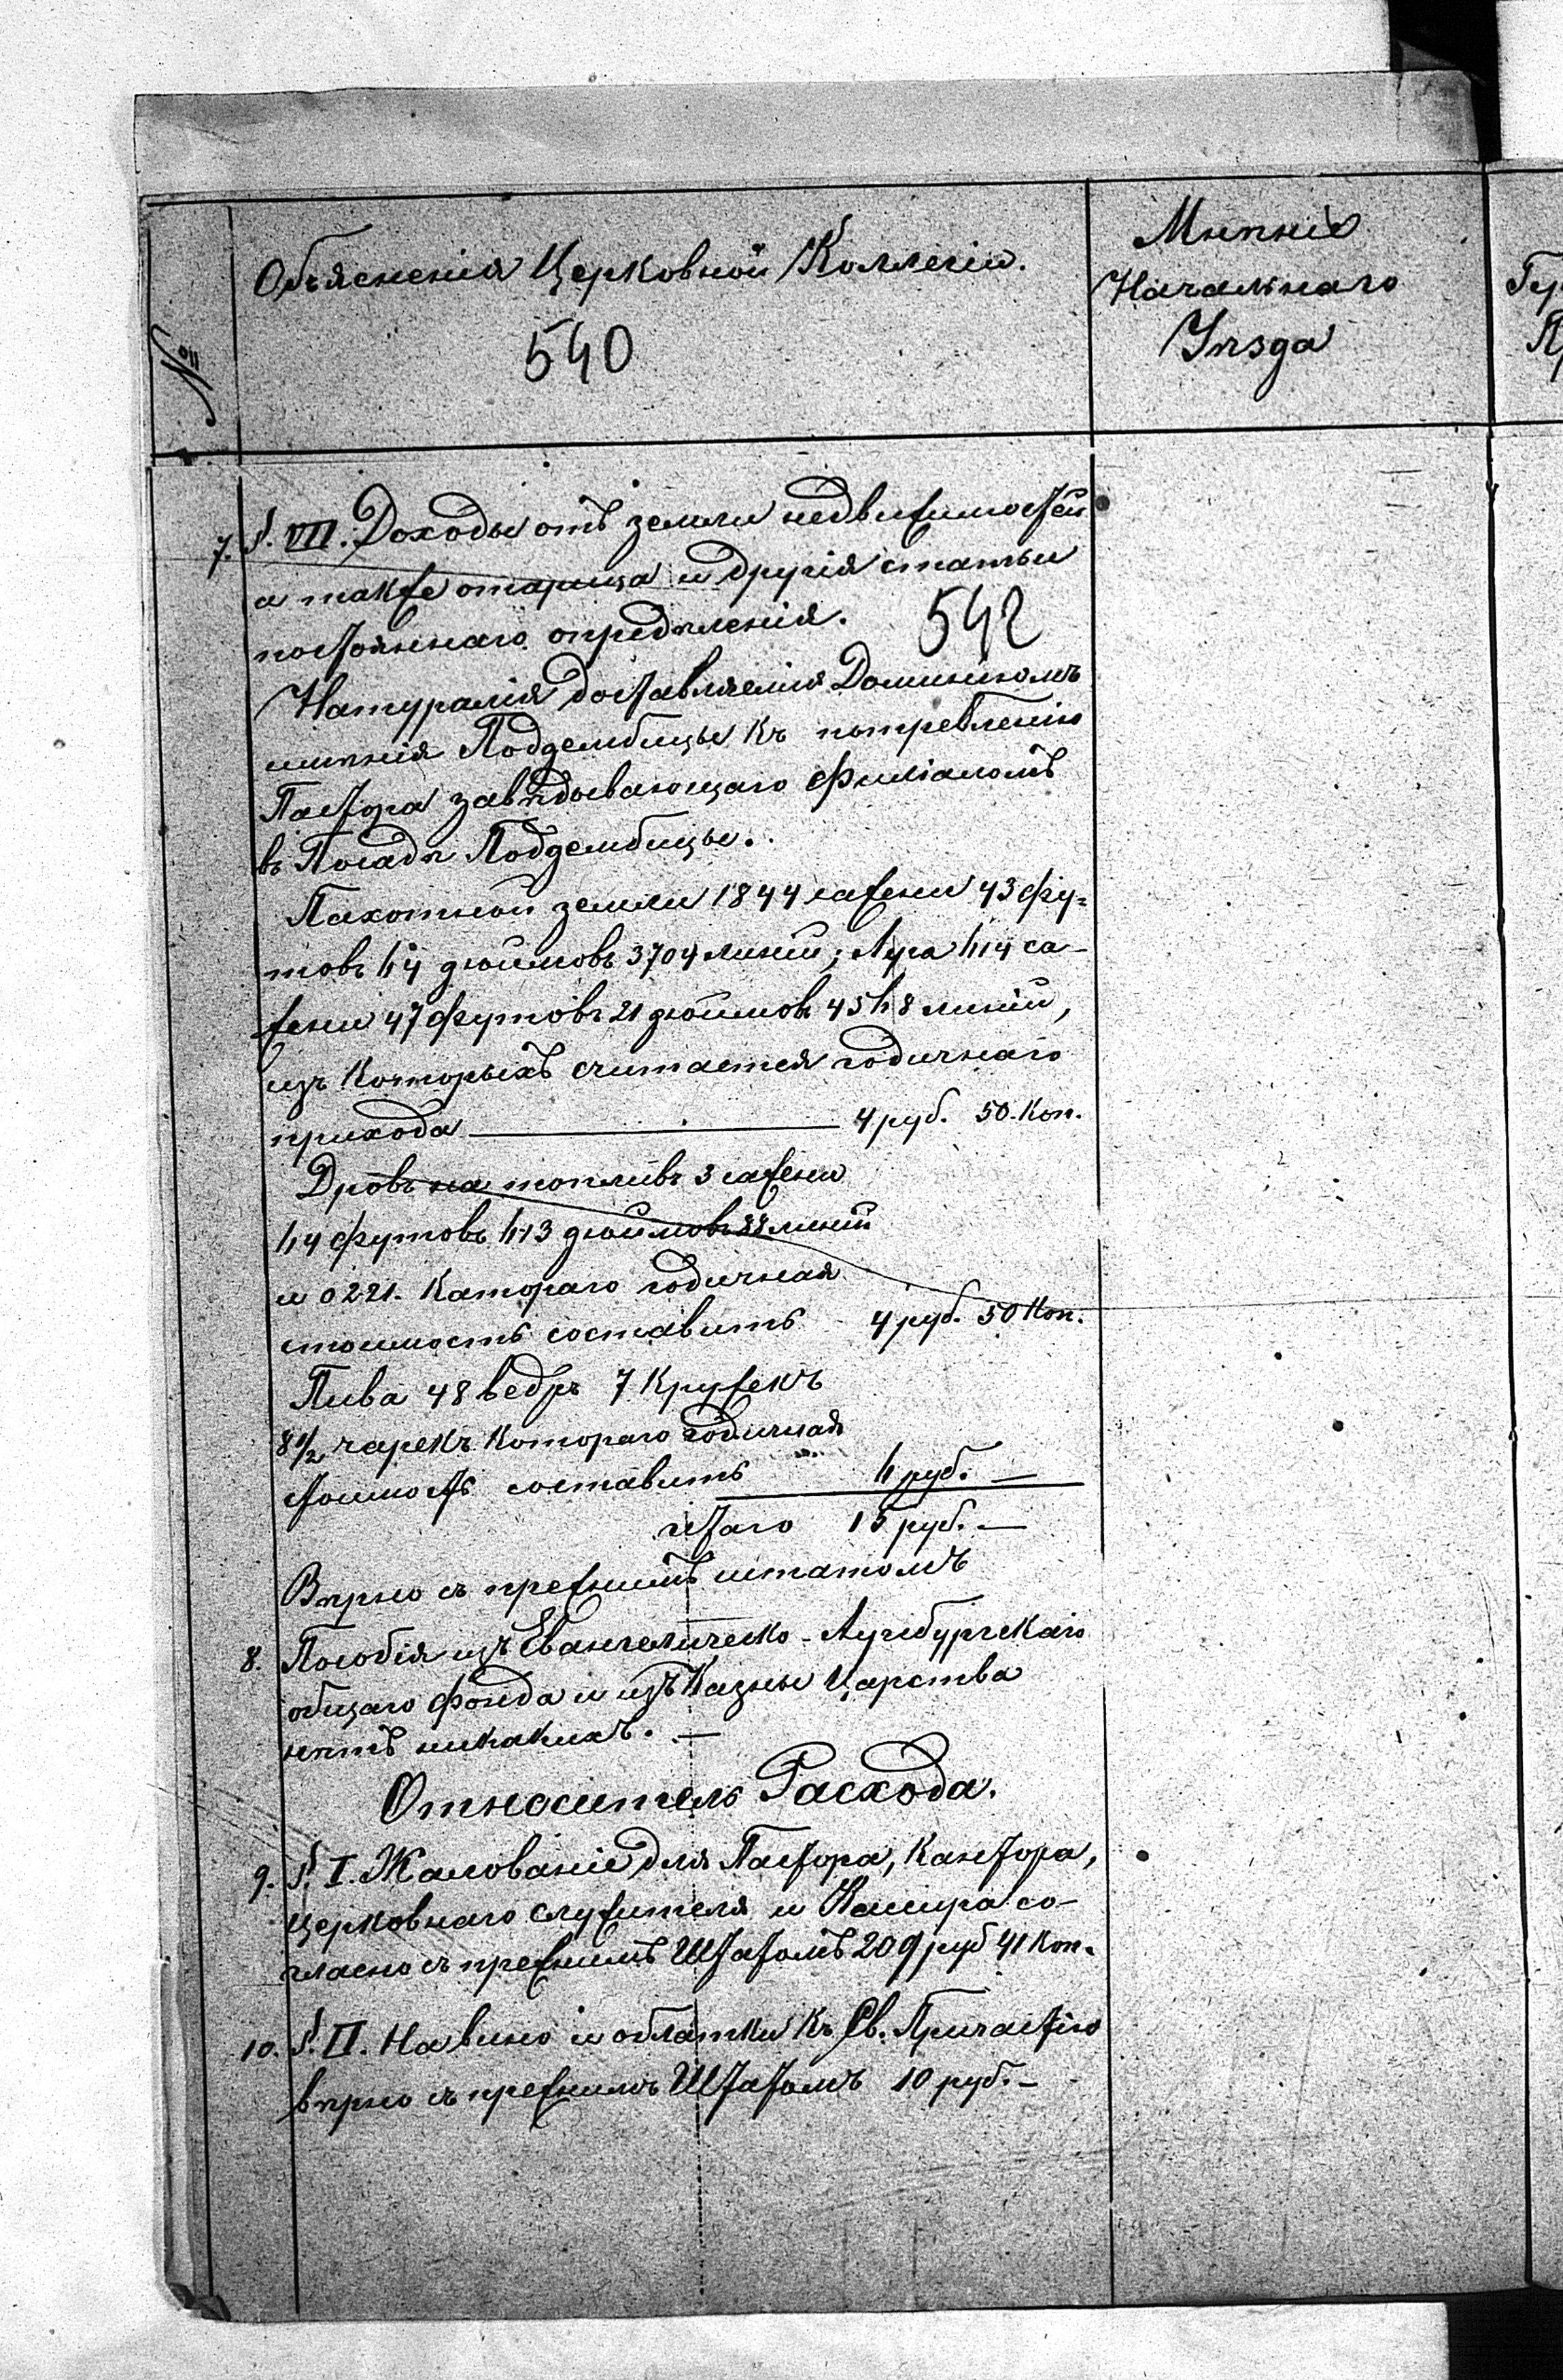 №
Объясненія Церковной Коллегіи.
540
Мнѣнія
Начальнаго
Уѣзда
7. §. VII. Доходы отъ земли недвижимостей
а также и другія статьи
постояннаго опредѣленія.
542
Натуралія доставляемыя Доминіюмъ
имѣнія Поддембицы къ потребленію
Пастора завѣдывающаго филіаломъ
въ Посадѣ Поддембицы.
Пахотной земли 1844 сажени 43 фу=
товъ 64 дюймовъ 3704 линіи; Луга 614 са-
жени 47 футовъ 21 дюймовъ 4568 линій,
изъ которыхъ считается годичнаго
прихода 4 руб. 50. Коп.
Дровъ на топливъ 3 сажени
64 футовъ 613 дюймовъ линій
и 0221. Катораго годичная
стоимость составитъ 4 руб. 50 Коп.
Пива 48 ведръ 7 Кружекъ
8 1/2 чарекъ котораго годичная
стоимость составитъ 6 руб. —
итаго 15 руб. —
Вѣрно съ прежнимъ штатомъ
8. Пособія изъ Евангелическо-Аугсбургскаго
общаго фонда и изъ Казны Царства
нѣтъ никакихъ. —
Относитель Расхода.
9. §. I. Жалованіе для Пастора, Кантора,
церковнаго служителя и Касира со-
гласно съ прежнимъ Штатомъ 209 руб 41 Коп.
10. §. II. На вино и облатки къ Св. Причастію
вѣрно съ прежнимъ Штатомъ 10 руб. -